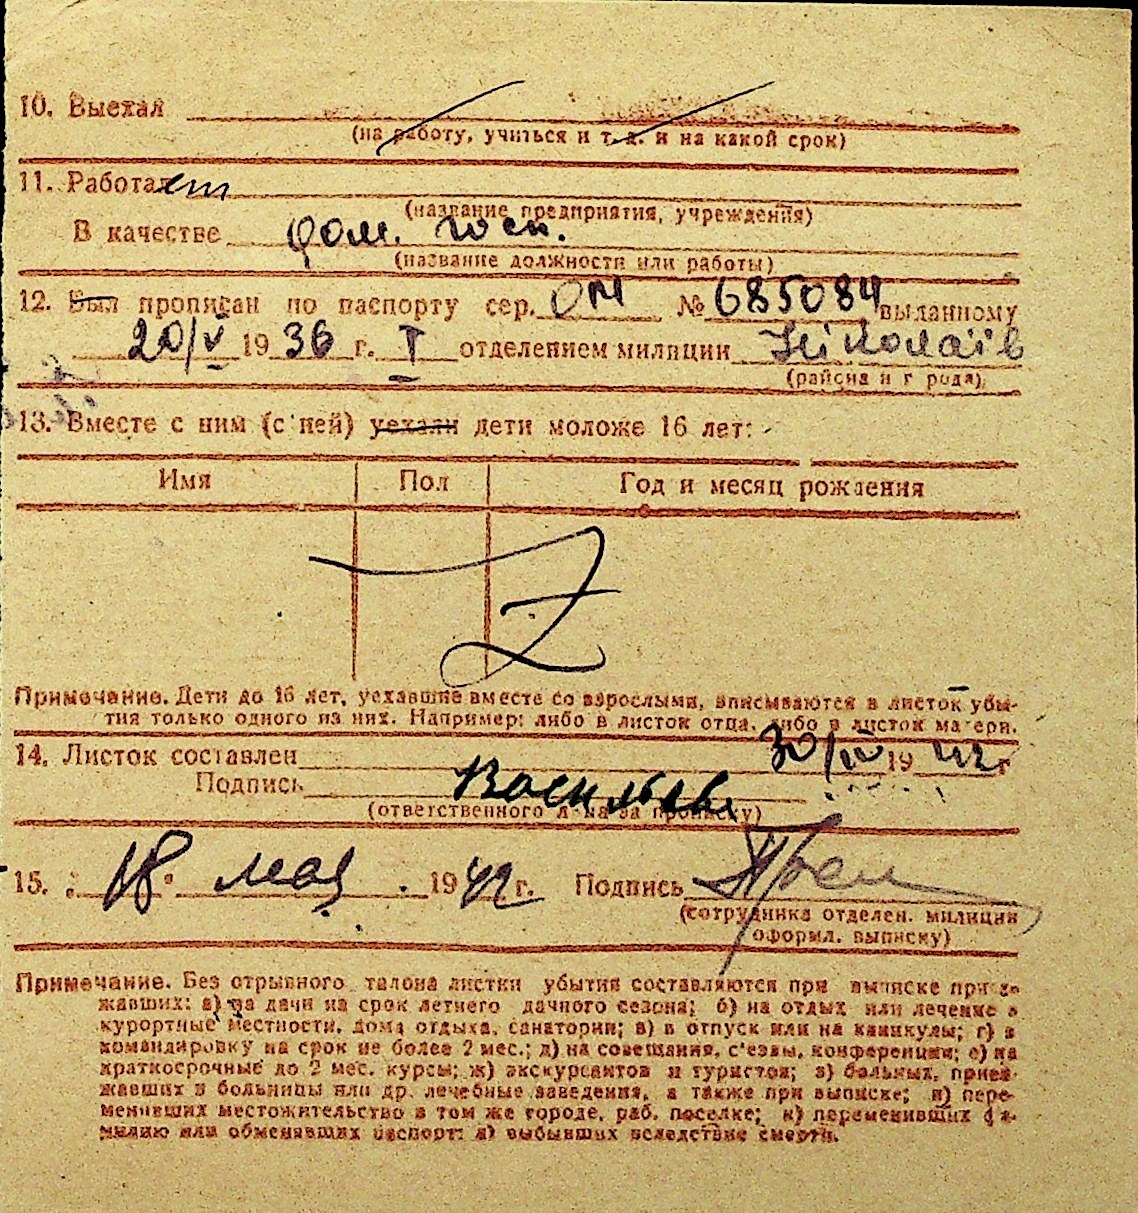 10. Выехал
(на работу, учиться и т. д. и на какой срок)
11. Работает
(название предприятия, учреждения)
В качестве дом. госп.
(название должности или работы)
12. Был прописан по паспорту сер. ОМ № 685084 выданному
20/V 1936 г. I отделением милиции Ніколаїв
(района и города)
13. Вместе с ним (с ней) уехали дети моложе 16 лет:
Имя Пол Год и месяц рождения
Z
Примечание. Дети до 16 лет, уехавшие вместе со взрослыми, вписываются в листок убы-
тия только одного из них. Например: либо в листок отца, либо в листок матери.
14. Листок составлен 30/IV 1942 г
Подпись
(ответственного л-ца за прописку)
15. 18 мая 1942 г. Подпись
(сотрудника отделен. милиции
оформл. выписку)
Примечание. Без отрывного талона листки убытия составляются при выписке приез-
жавших: а) на дачи на срок летнего дачного сезона; б) на отдых или лечение в
курортные местности, дома отдыха, санатории; в) в отпуск или на каникулы; г) в
командировку на срок не более 2 мес.; д) на совещания, с'езды, конференции; е) на
краткосрочные до 2 мес. курсы; ж) экскурсантов и туристов; з) больных, приез-
жавших в больницы или др. лечебные заведения, а также при выписке; и) пере-
менивших местожительство в том же городе, раб. поселке; к) переменивших фа-
милию или обменявших паспорт; л) выбывших вследствие смерти.